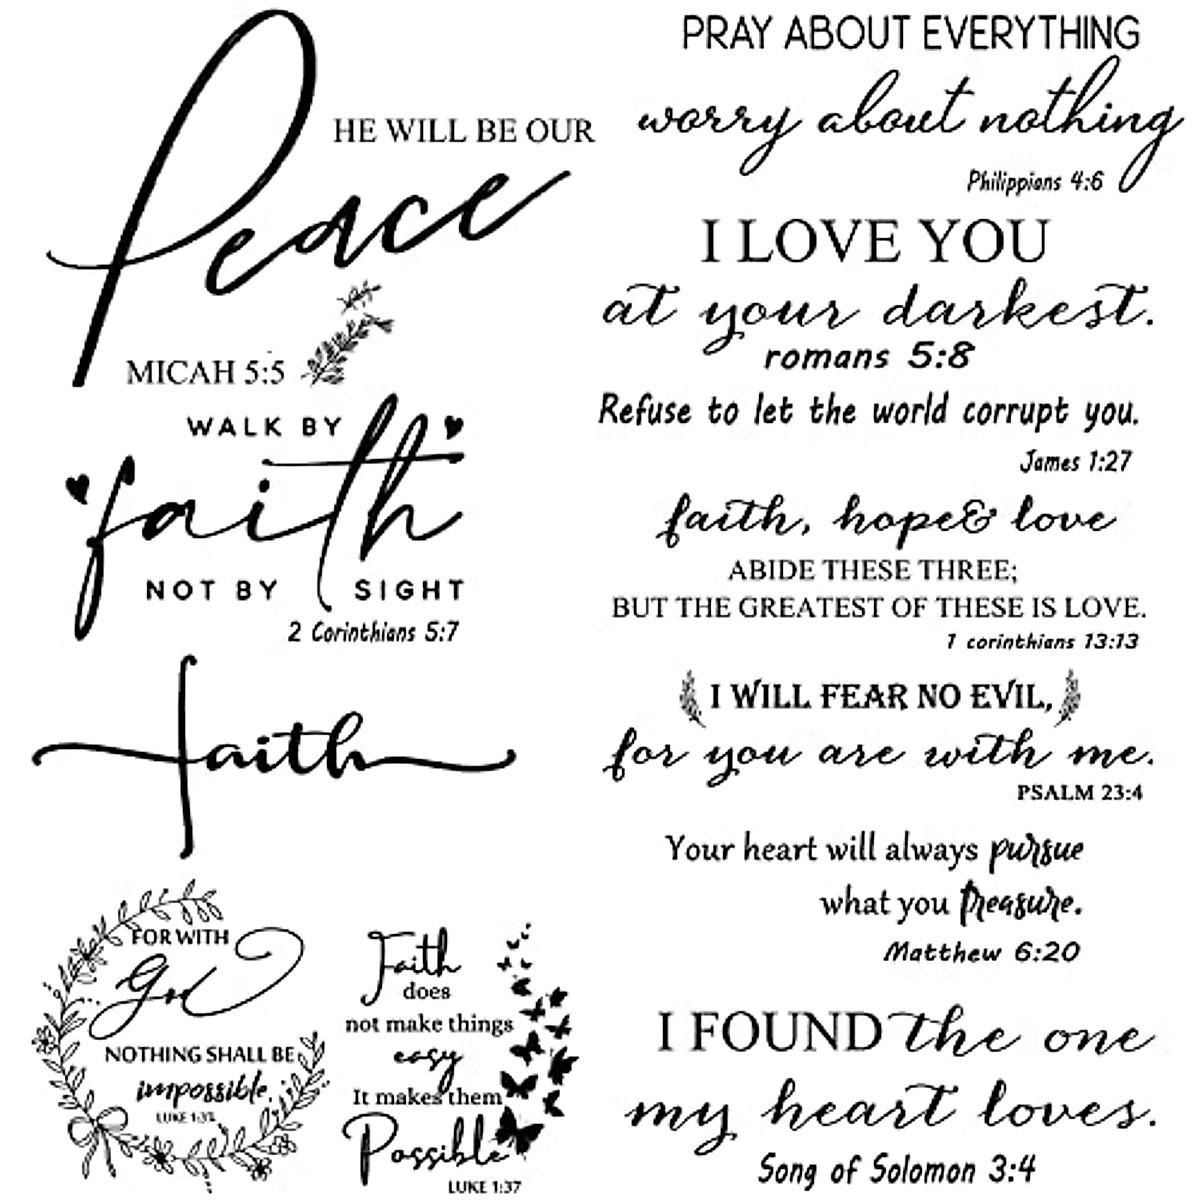 HE WILL BE OUR
Peace
MICAH 5:5
WALK BY
faith
NOT BY SIGHT
2 Corinthians 5:7
faith
FOR WITH
God
NOTHING SHALL BE
impossible.
LUKE 1:37
Faith
does
not make things
easy
It makes them
Possible
LUKE 1:37
PRAY ABOUT EVERYTHING
worry about nothing
Philippians 4:6
I LOVE YOU
at your darkest.
romans 5:8
Refuse to let the world corrupt you.
James 1:27
faith, hope& love
ABIDE THESE THREE;
BUT THE GREATEST OF THESE IS LOVE.
1 corinthians 13:13
I WILL FEAR NO EVIL,
for you are with me.
PSALM 23:4
Your heart will always pursue
what you treasure.
Matthew 6:20
I FOUND the one
my heart loves.
Song of Solomon 3:4